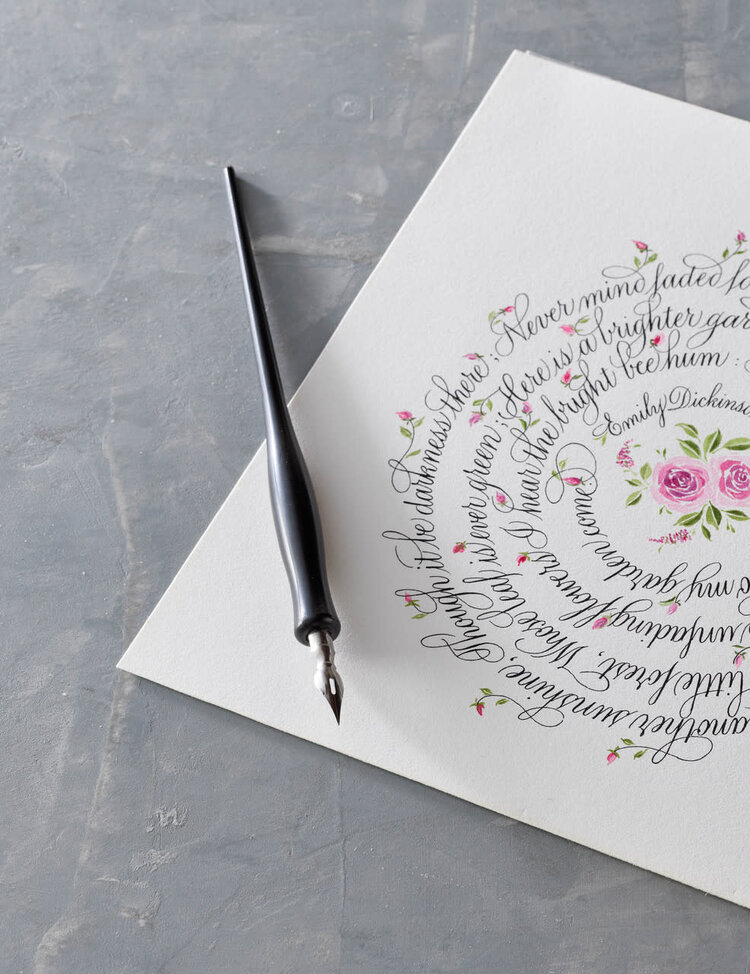 another sunshine, Though it be darkness there; Never mind faded fo
little forest, Whose leaf is ever green; Here is a brighter gar
unfading flowers I hear the bright bee hum :
to my garden come:
Emily Dickins